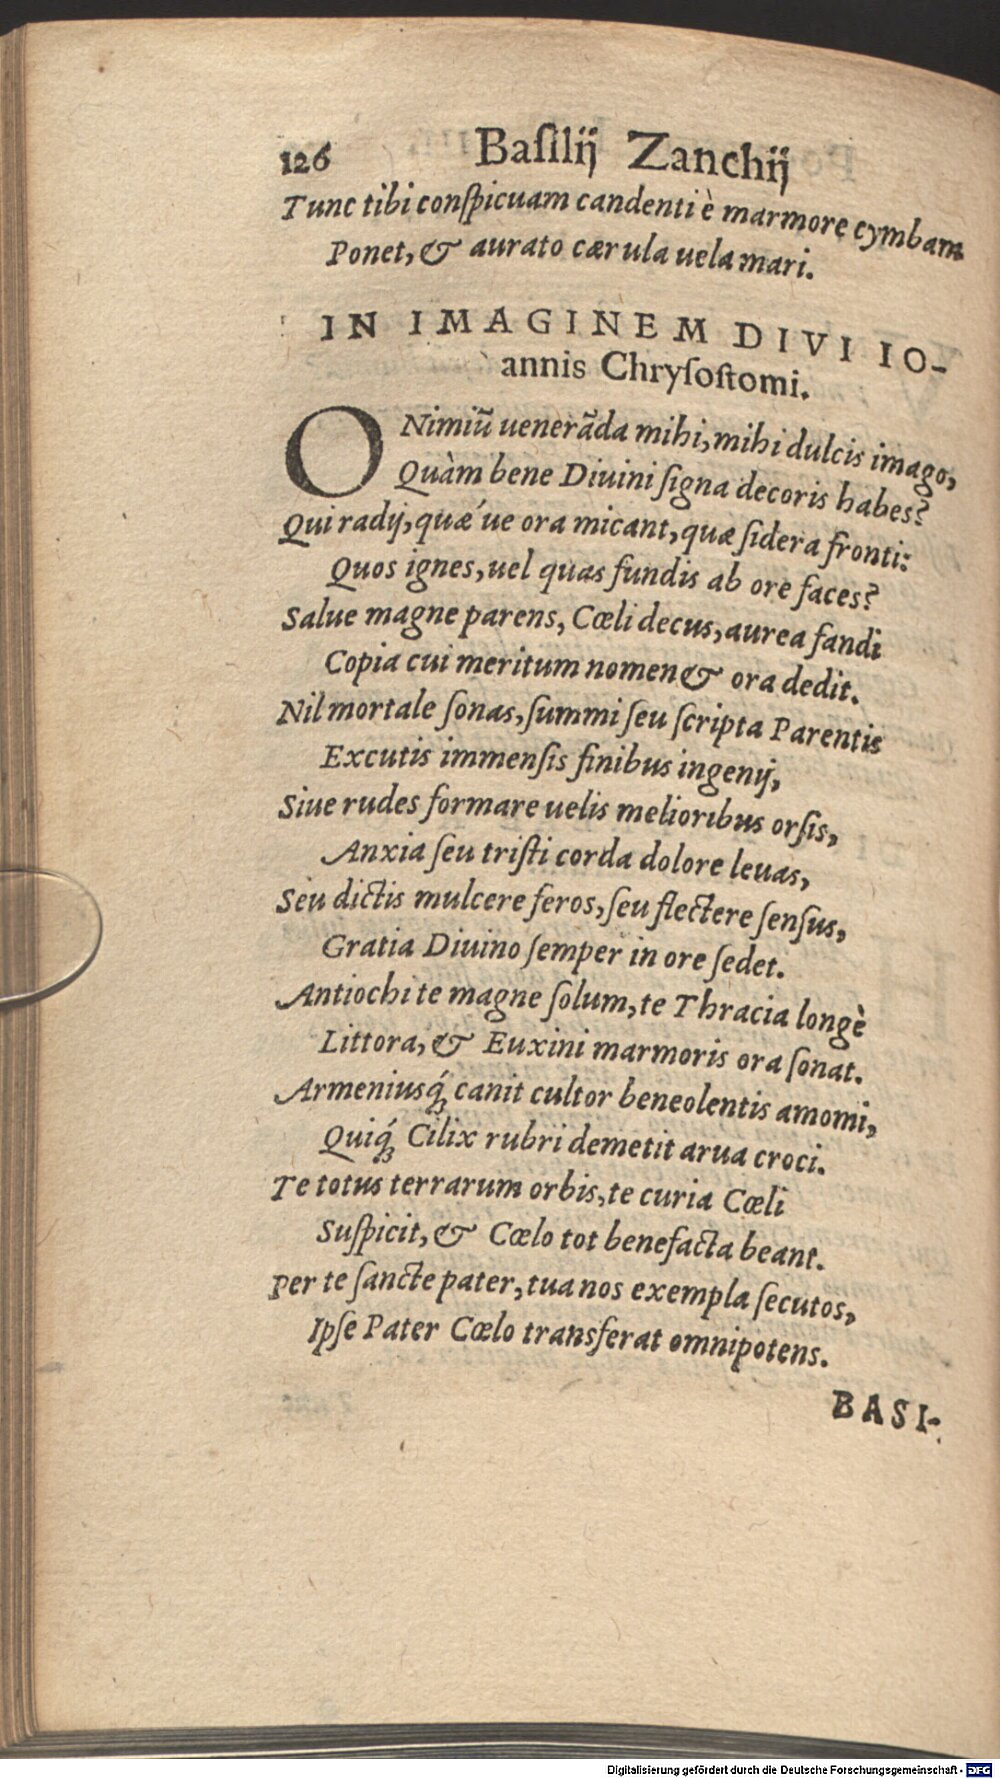 126 Baſilij Zanchij
Tunc tibi conſpicuam candenti è marmore cymbam
Ponet, & aurato cærula uela mari.
IN IMAGINEM DIVI IO-
annis Chryſoſtomi.
O Nimiũ uenerãda mihi, mihi dulcis imago,
Quàm bene Diuini ſigna decoris habes?
Qui radij, quæ´ue ora micant, quæ ſidera fronti:
Quos ignes, uel quas fundis ab ore faces?
Salue magne parens, Cœli decus, aurea fandi
Copia cui meritum nomen & ora dedit.
Nil mortale ſonas, ſummi ſeu ſcripta Parentis
Excutis immenſis finibus ingenij,
Siue rudes formare uelis melioribus orſis,
Anxia ſeu triſti corda dolore leuas,
Seu dictis mulcere feros, ſeu flectere ſenſus,
Gratia Diuino ſemper in ore ſedet.
Antiochi te magne ſolum, te Thracia longè
Littora, & Euxini marmoris ora ſonat.
Armeniusq́; canit cultor beneolentis amomi,
Quiq́; Cilix rubri demetit arua croci.
Te totus terrarum orbis, te curia Cœli
Suſpicit, & Cœlo tot benefacta beant.
Per te ſancte pater, tua nos exempla ſecutos,
Ipſe Pater Cœlo transferat omnipotens.
BASI-
Digitalisierung gefördert durch die Deutsche Forschungsgemeinschaft - DFG